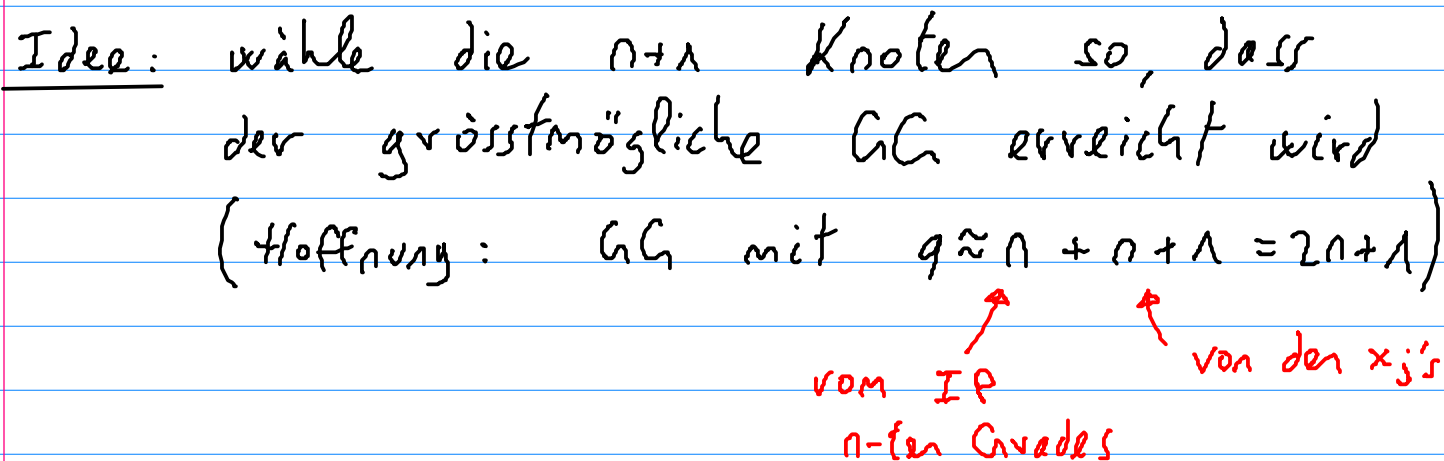 Idee: wähle die n+1 Knoten so, dass
der grösstmögliche GG erreicht wird
(Hoffnung: GG mit q≈n + n+1 = 2n+1)
von den xj's
vom IP
n-ten Grades